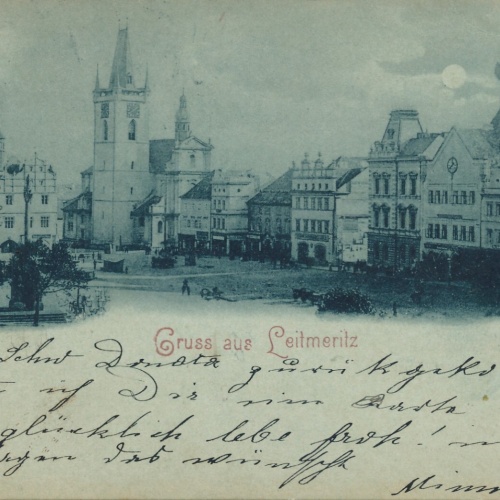 Gruss aus Leitmeritz
Donáta zurük geko
ich Dir eine Karte
glücklich lebe froh!
das wünscht